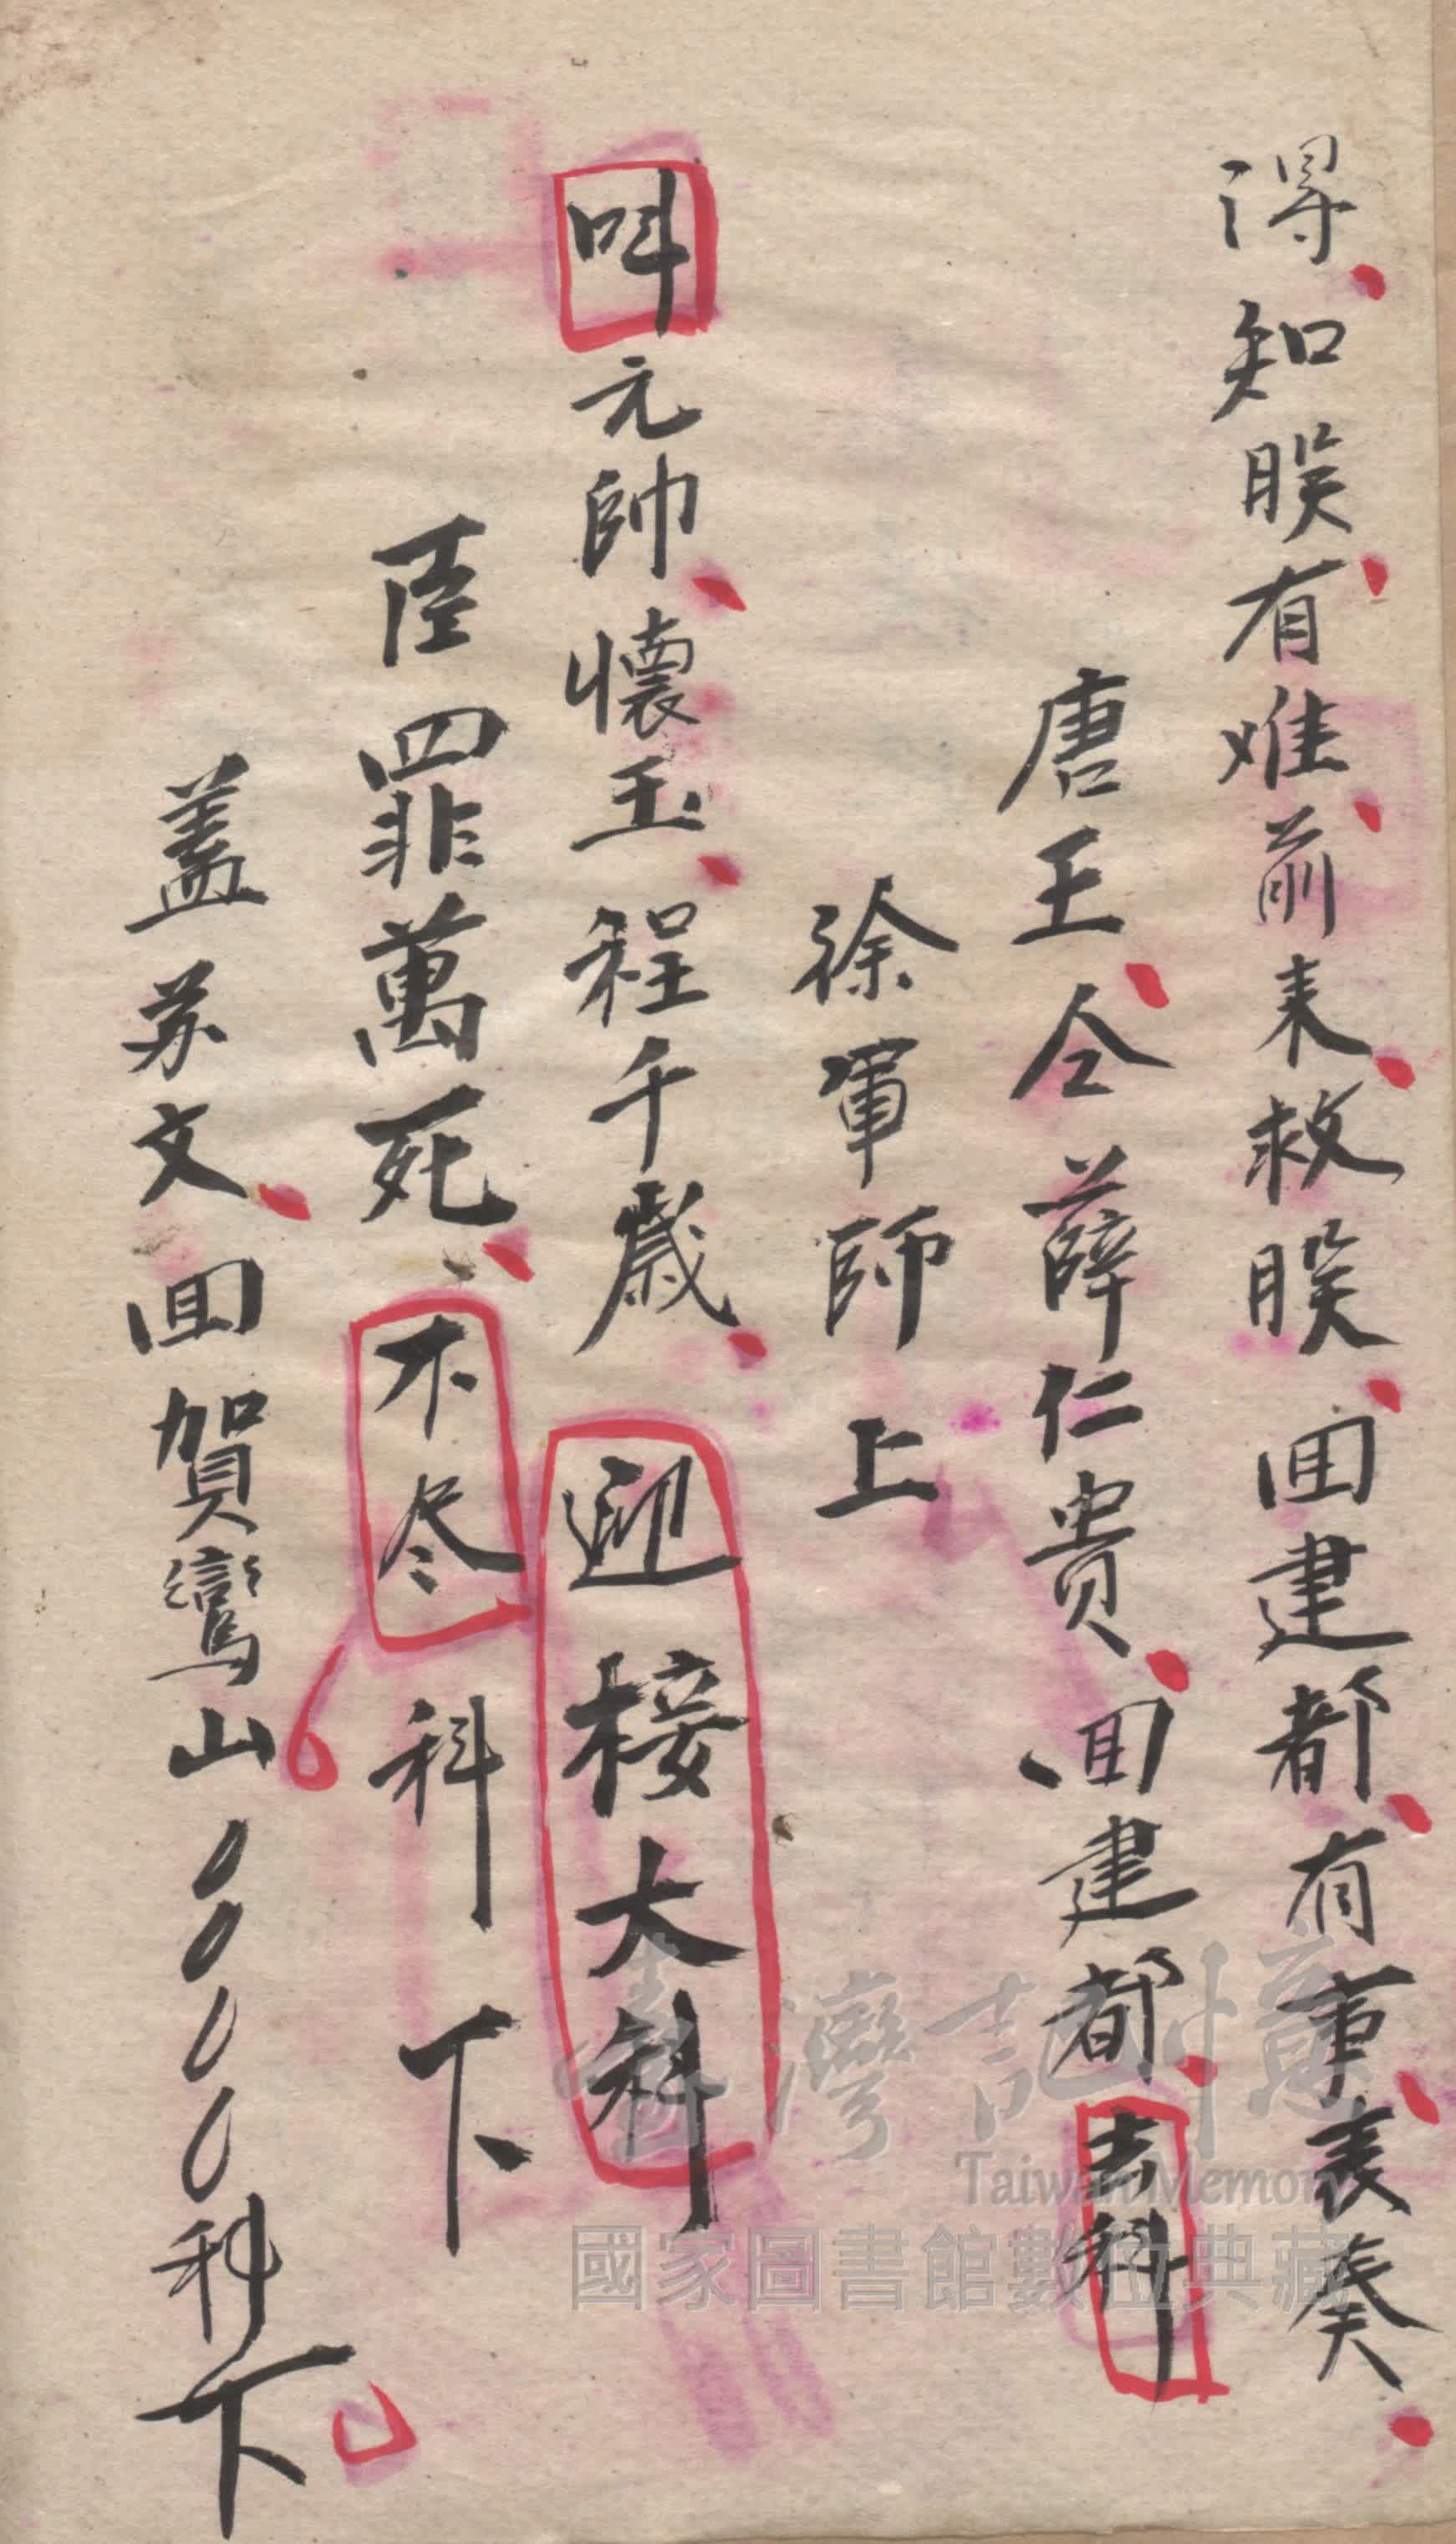 得知朕有难前来救朕回建都有事表奏
唐王仝薛仁貴回建都去科
徐軍師上
叫元帥懷玉程千歲迎接大科
臣罪萬死不尽科下
蓋苏文回賀鸞山科下
臺灣記憶
Taiwan Memory
國家圖書館數位典藏